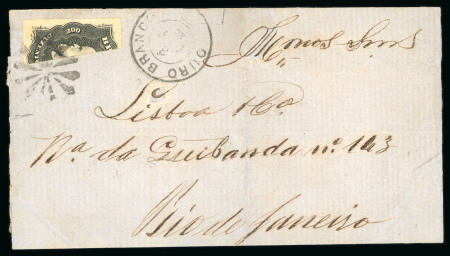 200
OURO BRANCO
Lisboa & Ca
Ra. da Quitanda nº. 143
Rio de Janeiro